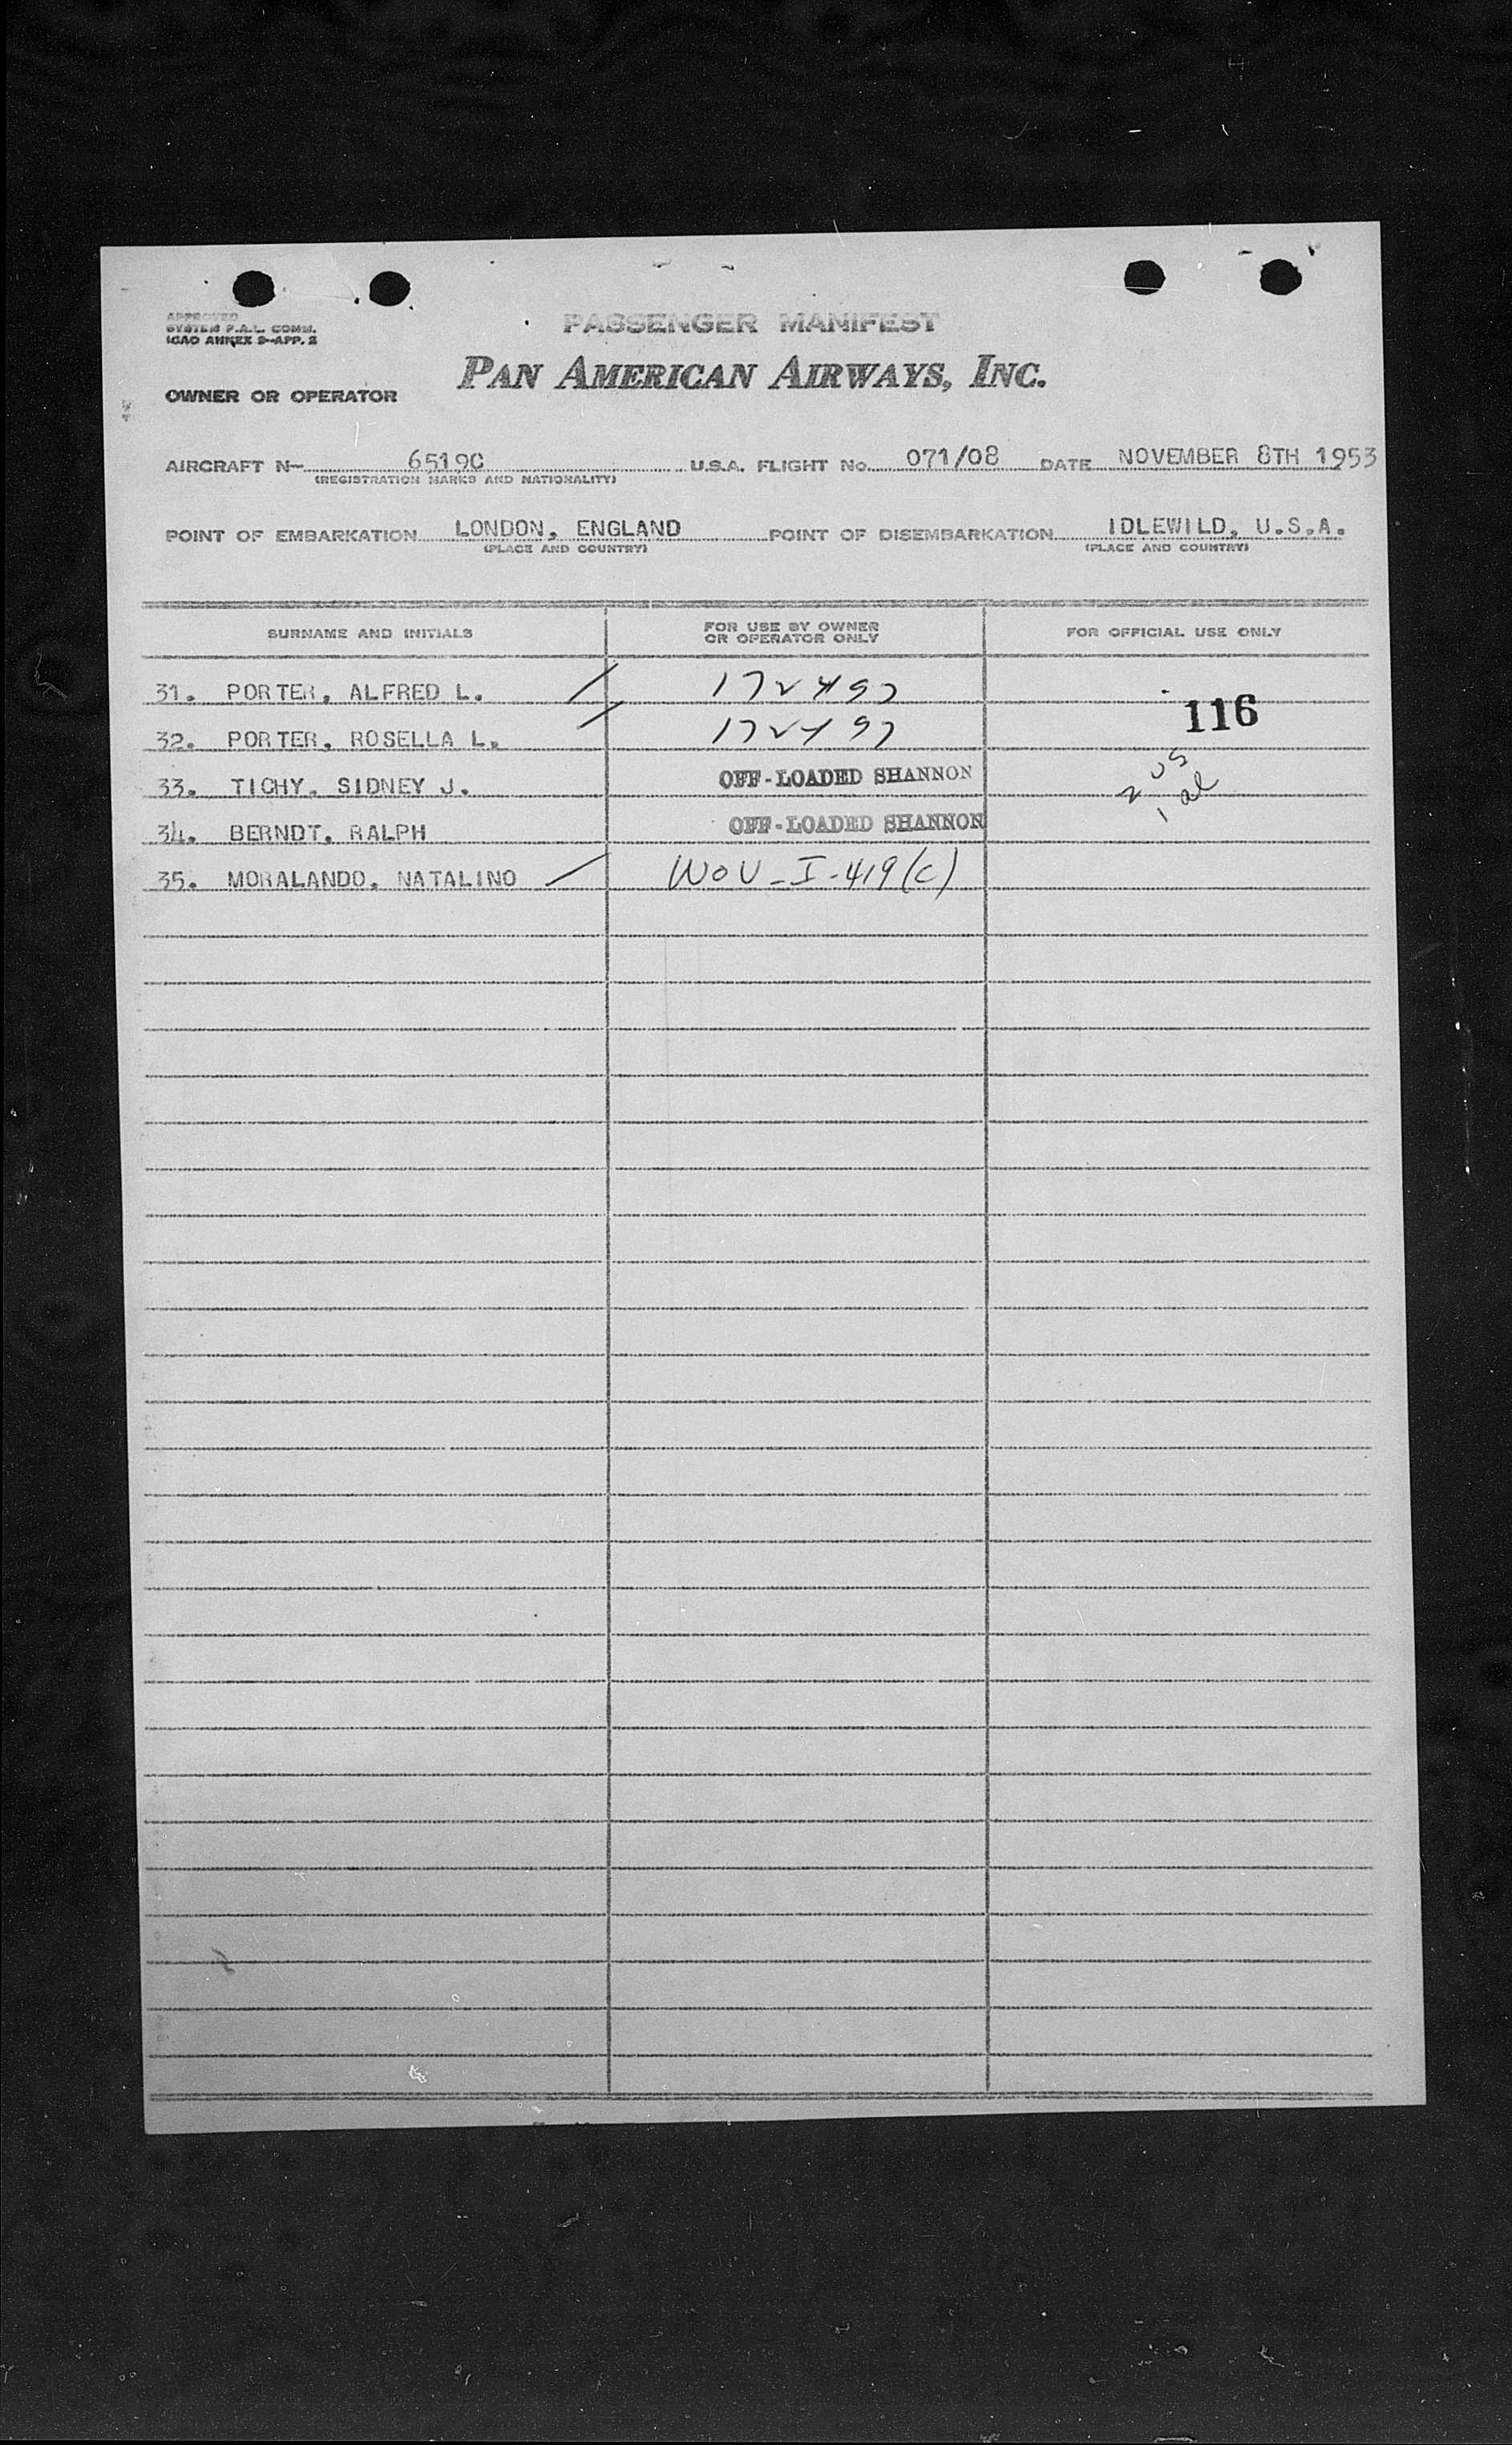 APPROVED
SYSTEM P.A.L. COMM.
ICAO ANNEX 9-APP. 2
PASSENGER MANIFEST
PAN AMERICAN AIRWAYS, INC.
OWNER OR OPERATOR
AIRCRAFT N- 6519C U.S.A. FLIGHT No. 071/08 DATE NOVEMBER 8TH 1953
(REGISTRATION MARKS AND NATIONALITY)
POINT OF EMBARKATION LONDON, ENGLAND POINT OF DISEMBARKATION IDLEWILD, U.S.A.
(PLACE AND COUNTRY) (PLACE AND COUNTRY)
SURNAME AND INITIALS FOR USE BY OWNER OR OPERATOR ONLY FOR OFFICIAL USE ONLY
31. PORTER, ALFRED L. 172457
116
32. PORTER, ROSELLA L. 172457
33. TICHY, SIDNEY J. OFF-LOADED SHANNON 2 US
34. BERNDT, RALPH OFF-LOADED SHANNON 1 al
35. MORALANDO, NATALINO WOV-I-419(c)